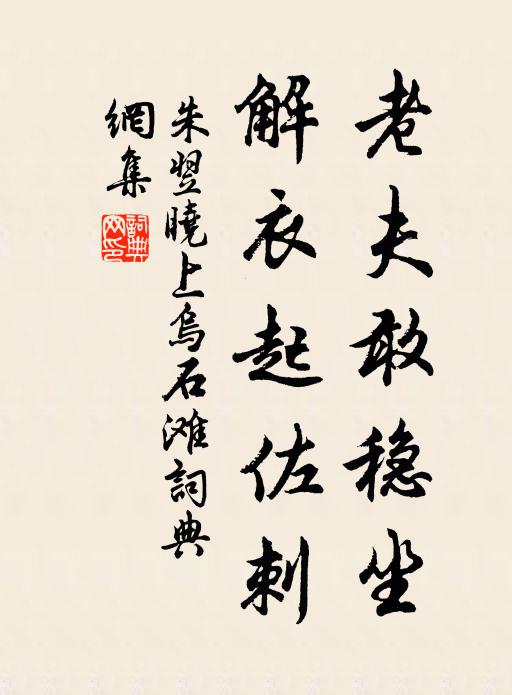 老夫敢稳坐
解衣起佐刺
朱翌曉上烏石滩詞典
網集
詞典
网印